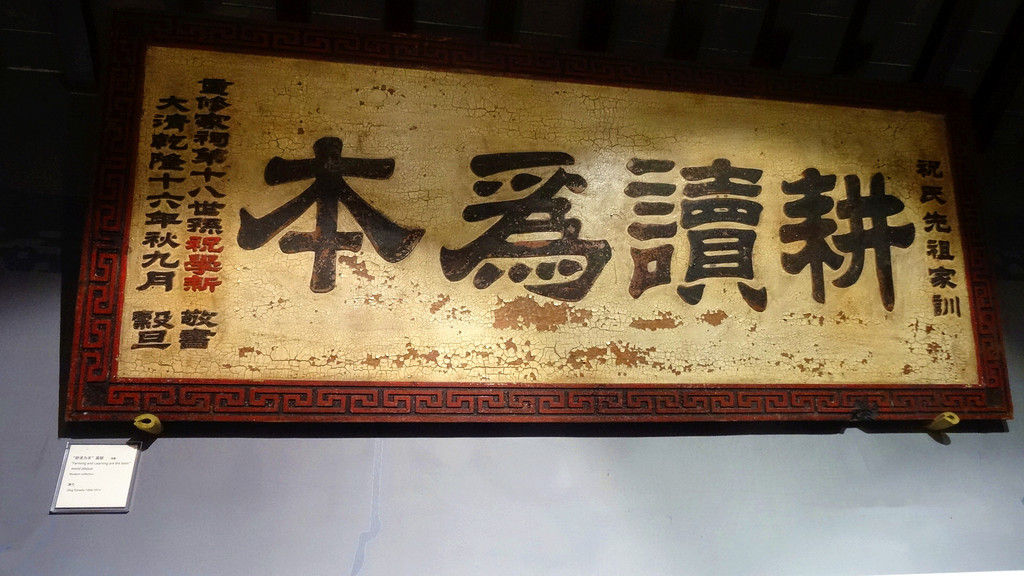 祝氏先祖家訓
耕讀為本
重修家祠第十八世孫祝學新 敬書
大清乾隆十六年秋九月 穀旦
"耕读为本"匾额
"Farming and Learning are the Best"